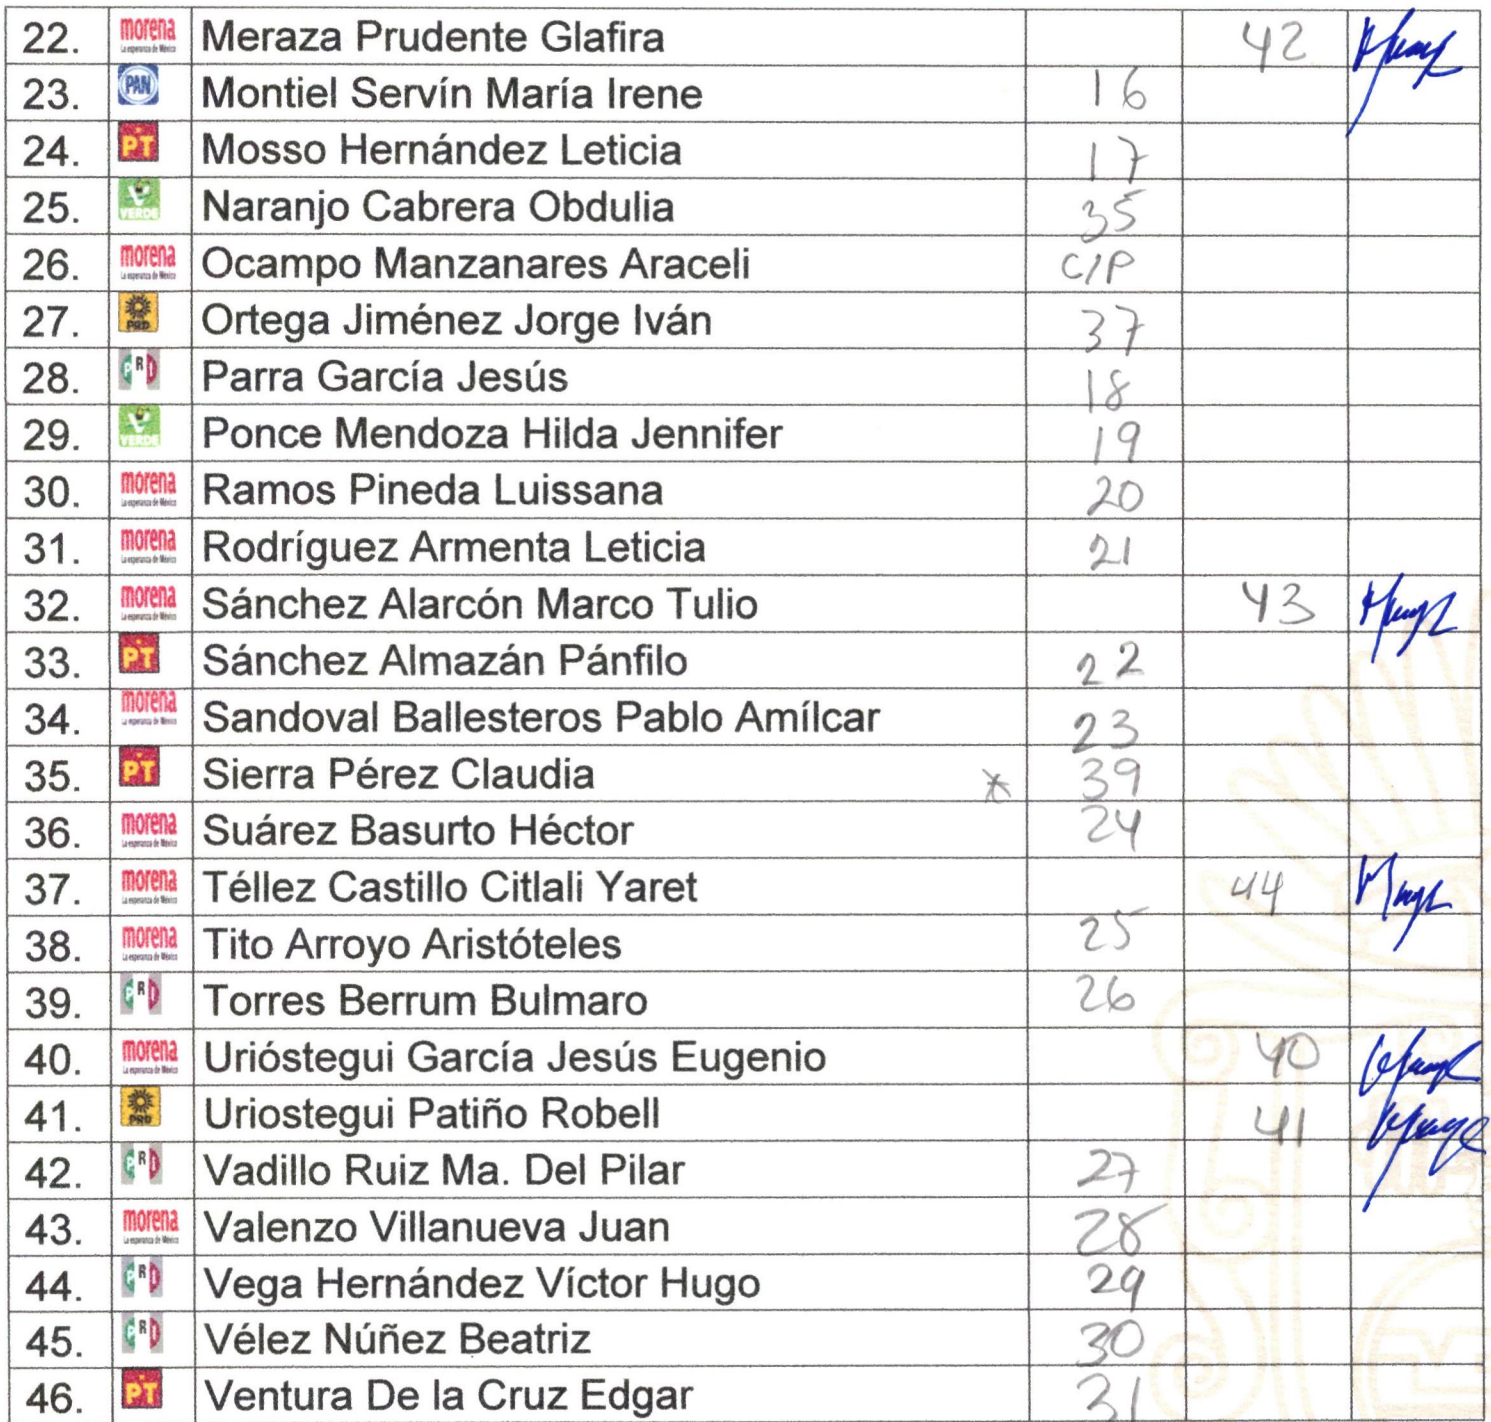 22. morena La esperanza de México Meraza Prudente Glafira 42
23. PAN Montiel Servín María Irene 16
24. PT Mosso Hernández Leticia 17
25. VERDE Naranjo Cabrera Obdulia 35
26. morena La esperanza de México Ocampo Manzanares Araceli C/P
27. PRD Ortega Jiménez Jorge Iván 37
28. PRI Parra García Jesús 18
29. VERDE Ponce Mendoza Hilda Jennifer 19
30. morena La esperanza de México Ramos Pineda Luissana 20
31. morena La esperanza de México Rodríguez Armenta Leticia 21
32. morena La esperanza de México Sánchez Alarcón Marco Tulio 43
33. PT Sánchez Almazán Pánfilo 22
34. morena La esperanza de México Sandoval Ballesteros Pablo Amílcar 23
35. PT Sierra Pérez Claudia * 39
36. morena La esperanza de México Suárez Basurto Héctor 24
37. morena La esperanza de México Téllez Castillo Citlali Yaret 44
38. morena La esperanza de México Tito Arroyo Aristóteles 25
39. PRI Torres Berrum Bulmaro 26
40. morena La esperanza de México Urióstegui García Jesús Eugenio 40
41. PRD Uriostegui Patiño Robell 41
42. PRI Vadillo Ruiz Ma. Del Pilar 27
43. morena La esperanza de México Valenzo Villanueva Juan 28
44. PRI Vega Hernández Víctor Hugo 29
45. PRI Vélez Núñez Beatriz 30
46. PT Ventura De la Cruz Edgar 31